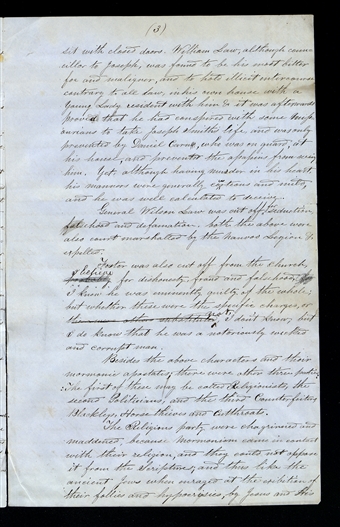 (3)
sit with closed doors. William Law, although councillor
cillor to Joseph, was found to be his most bitter
foe and maligner, and to hold illicit intercourse
contrary to all law, in his own house with a
young Lady resident with him & it was afterwards
proved that he had conspired with some
to take Joseph Smiths life, and was only
prevented by Daniel Carn, who was on guard, at
his house, and prevented the assassins from seeing
him. Yet although having murder in his heart
his manners were generally courteous and mild,
and he was well calculated to deceive.
General Wilson Law was cut off, for seduction,
falsehood and defamation. both the above were
also court marshalled by the Nauvoo Legion &
expelled.
Foster was also cut off from the church,
I believe for dishonesty fraud and falsehood.
I know he was eminently guilty of the whole,
but whether these were the specific charges, or
not, I dont know, but
I do know that he was a notoriously wicked
and corrupt man.
Besides the above characters and their
mormonic apostates, there were other three parties.
The first of these may be called Religionists, the
second Politicians, and the third Counterfeiters,
Blacklegs, Horse thieves and Cutthroats.
The Religious party were chagrined and
maddened, because Mormonism came in contact
with their religion, and they could not oppose
it from the scriptures, and thus like the
ancient Jews when enraged at the exhibition of
their follies and hypocrisies, by Jesus and his